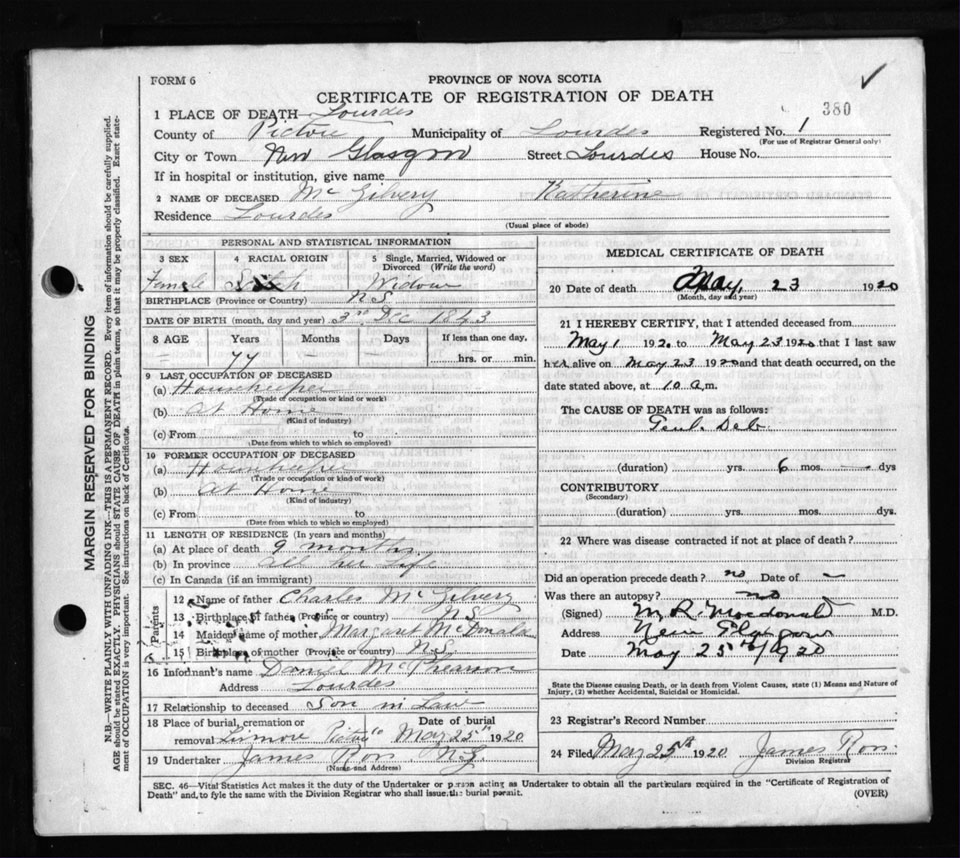 FORM 6
PROVINCE OF NOVA SCOTIA
CERTIFICATE OF REGISTRATION OF DEATH
380
1 PLACE OF DEATH Lourdes
County of Pictou Municipality of Lourdes Registered No. 1
(For use of Registrar General only)
City or Town New Glasgow Street Lourdes House No.
If in hospital or institution, give name
2 NAME OF DECEASED McGilvery Katherine
Residence Lourdes
(Usual place of abode)
PERSONAL AND STATISTICAL INFORMATION
3 SEX 4 RACIAL ORIGIN 5 Single, Married, Widowed or Divorced (Write the word)
Female Scotch Widow
BIRTHPLACE (Province or Country) N.S.
DATE OF BIRTH (month, day and year) 3rd Dec 1843
8 AGE Years Months Days If less than one day,
– 77 – hrs. or min.
9 LAST OCCUPATION OF DECEASED
(a) Housekeeper
(Trade or occupation or kind or work)
(b) At Home
(Kind of industry)
(c) From to
(Date from which to which so employed)
10 FORMER OCCUPATION OF DECEASED
(a) Housekeeper
(Trade or occupation or kind or work)
(b) At Home
(Kind of industry)
(c) From to
(Date from which to which so employed)
11 LENGTH OF RESIDENCE (In years and months)
(a) At place of death 9 months
(b) In province all her life
(c) In Canada (if an immigrant)
Parents
12 Name of father Charles McGilvery
13 Birthplace of father (Province or country) N.S.
14 Maiden name of mother Margaret McDonald
15 Birthplace of mother (Province or country) N.S.
16 Informant's name Daniel McPhearson
Address Lourdes
17 Relationship to deceased Son in Law
18 Place of burial, cremation or Date of burial
removal Pictou Co May 25th 1920
19 Undertaker James Ross N.G.
(Name and Address)
MEDICAL CERTIFICATE OF DEATH
20 Date of death May, 23 1920
(Month, day and year)
21 I HEREBY CERTIFY, that I attended deceased from
May 1 1920 to May 23 1920 that I last saw
her alive on May 23 1920 and that death occurred, on the
date stated above, at 10 a.m.
The CAUSE OF DEATH was as follows:
Genl. Deb.
(duration) yrs. 6 mos. – dys
CONTRIBUTORY
(Secondary)
(duration) yrs. mos. dys.
22 Where was disease contracted if not at place of death?
Did an operation precede death? no Date of –
Was there an autopsy? no
(Signed) M. R. Macdonald M.D.
Address New Glasgow
Date May 25th/1920
State the Disease causing Death, or in death from Violent Causes, state (1) Means and Nature of
Injury, (2) whether Accidental, Suicidal or Homicidal.
23 Registrar's Record Number
24 Filed May 25th 1920 James Ross
Division Registrar
SEC. 46—Vital Statistics Act makes it the duty of the Undertaker or person acting as Undertaker to obtain all the particulars required in the "Certificate of Registration of
Death" and, to fyle the same with the Division Registrar who shall issue the burial permit.
(OVER)
MARGIN RESERVED FOR BINDING
N.B.—WRITE PLAINLY WITH UNFADING INK—THIS IS A PERMANENT RECORD. Every item of information should be carefully supplied.
AGE should be stated EXACTLY. PHYSICIANS should STATE CAUSE OF DEATH in plain terms, so that it may be properly classified. Exact state-
ment of OCCUPATION is very important. See instructions on back of Certificate.